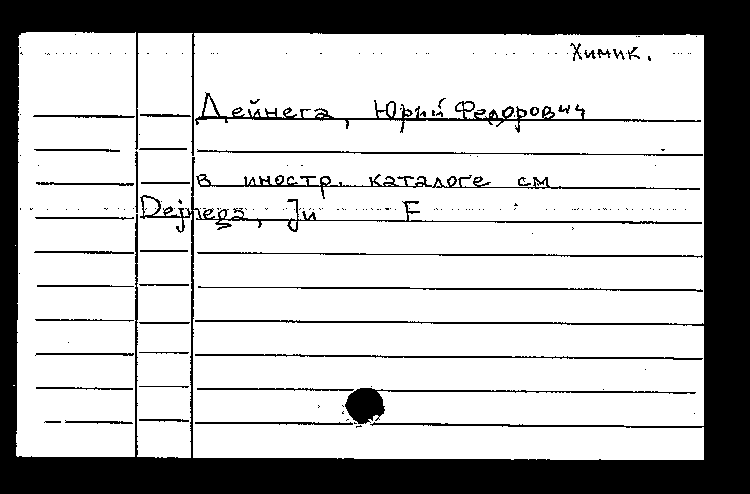 Химик.
Дейнега, Юрий Федорович
в иностр. каталоге см
Dejnega, Ju F